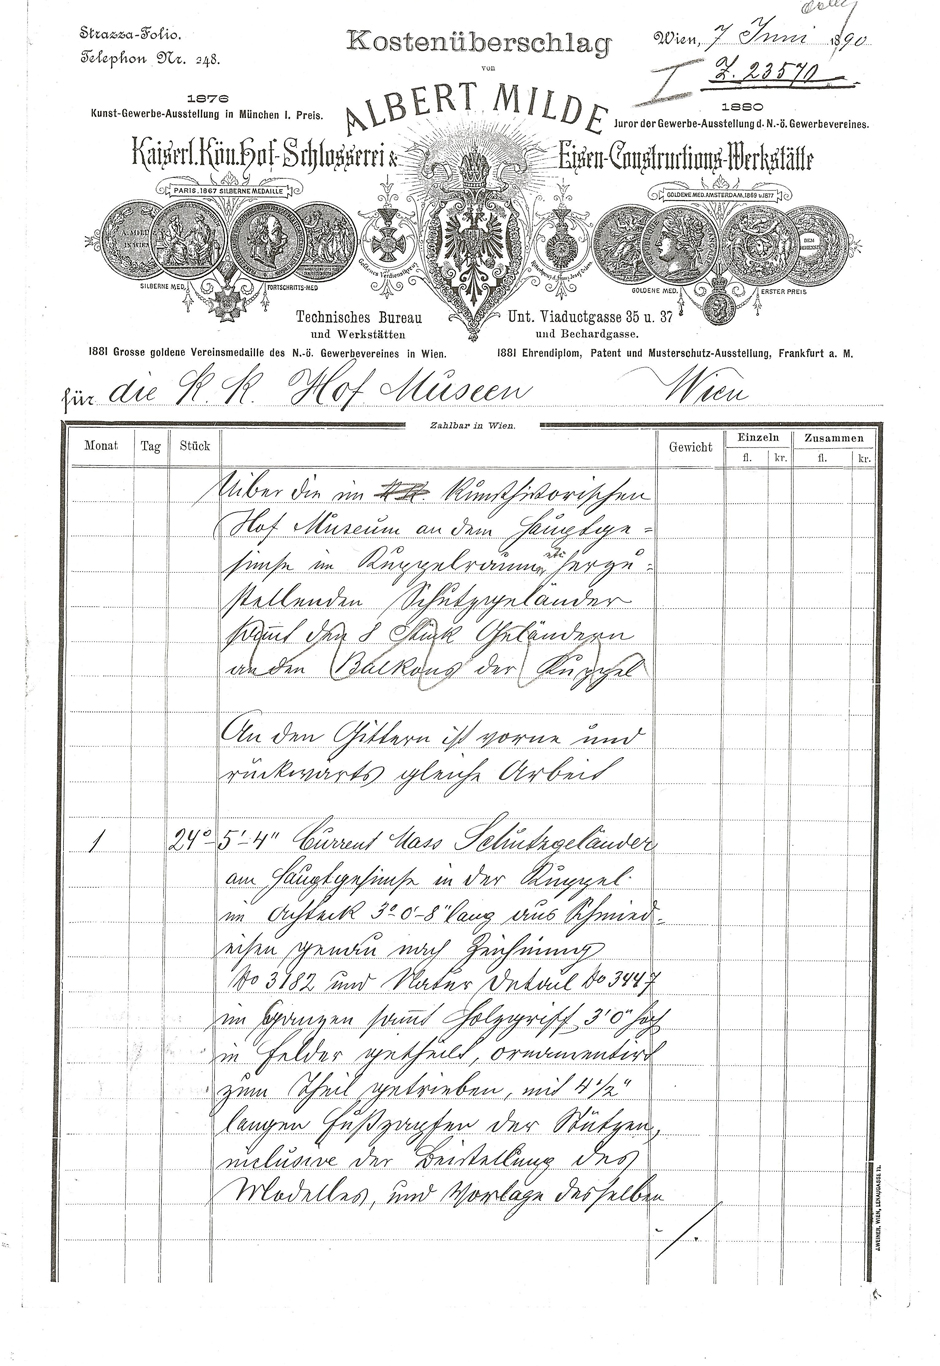 Strazza-Folio.
Telephon Nr. 248.
Kostenüberschlag
von
ALBERT MILDE
Wien, 7 Juni 1890
I Z. 23570
1876
Kunst-Gewerbe-Ausstellung in München I. Preis.
1880
Juror der Gewerbe-Ausstellung d. N.-ö. Gewerbevereines.
Kaiserl. Kön. Hof-Schlosserei & Eisen-Constructions-Werkstätte
PARIS. 1867 SILBERNE MEDAILLE
GOLDENE MED. AMSTERDAM, 1869 u. 1877
A. MILDE
IN WIEN
SILBERNE MED.
FORTSCHRITTS-MED
Goldenes Verdienstkreuz
GOLDENE MED.
ERSTER PREIS
Technisches Bureau
und Werkstätten
Unt. Viaductgasse 35 u. 37
und Bechardgasse.
1881 Grosse goldene Vereinsmedaille des N.-ö. Gewerbevereines in Wien.
1881 Ehrendiplom, Patent und Musterschutz-Ausstellung, Frankfurt a. M.
für die K. K. Hof Museen Wien
Zahlbar in Wien.
Monat Tag Stück Gewicht Einzeln Zusammen
fl. kr. fl. kr.
Uiber die im kunsthistorischen
Hof Museum an dem Hauptge=
simse im Kuppelraume etc herzu=
stellenden Schutzgeländer
sammt den 8 Stück Geländern
an den Balkons der Kuppel
An den Gittern ist vorne und
rückwärts gleiche Arbeit
1 24°-5'-4" Current Mass Schutzgeländer
am Hauptgesimse in der Kuppel.
im Achteck 3°-0'-8" lang aus Schmied=
eisen genau nach Zeichnung
No 3182 und Natur Detail No 3447
im Ganzen sammt Holzgriff 3'0" hoch
in Felder getheilt, ornamentirt
zum Theil getrieben, mit 4 1/2"
langen Fußzapfen der Stützen,
inclusive der Beistellung des
Modelles, und Vorlage desselben
-/.
J. WEINER, WIEN, LENAUGASSE 12.